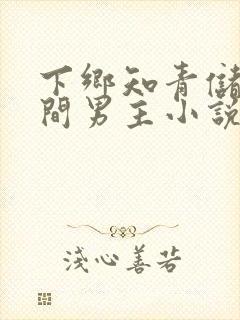 下鄉知青儲
間男主小說
淺心善若